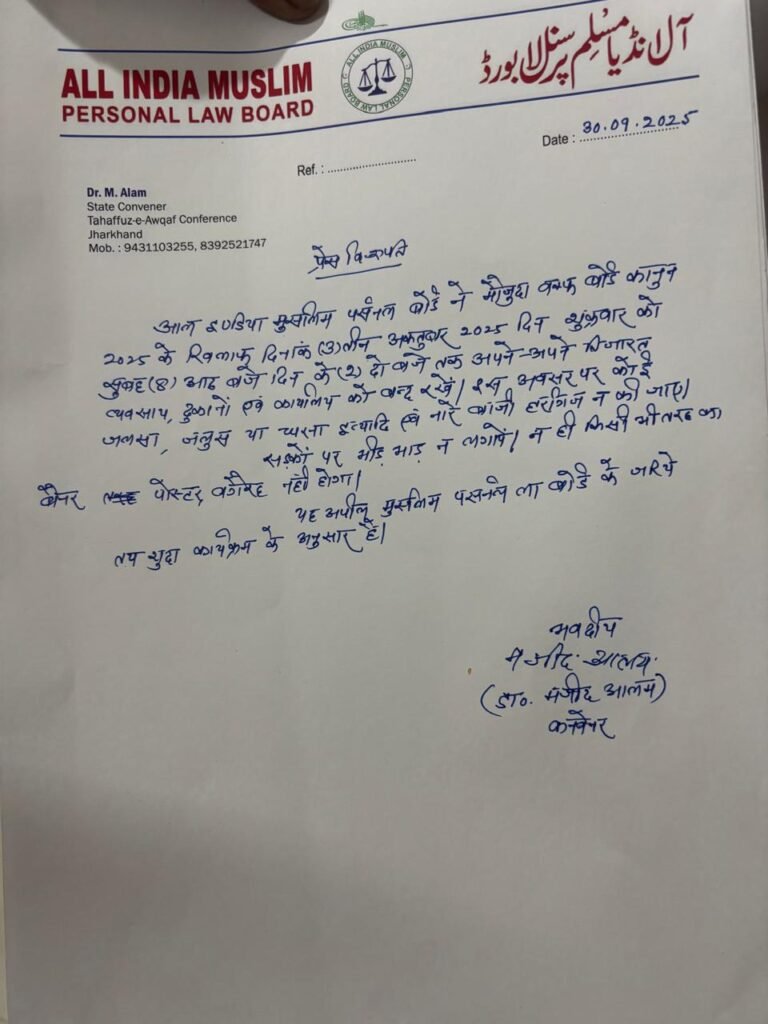 ALL INDIA MUSLIM
PERSONAL LAW BOARD
ALL INDIA MUSLIM
PERSONAL LAW BOARD
آل انڈیا مسلم پرسنل لا بورڈ
Ref. : ..........................
Date : 30.09.2025
Dr. M. Alam
State Convener
Tahaffuz-e-Awqaf Conference
Jharkhand
Mob. : 9431103255, 8392521747
प्रेस विज्ञप्ति
आल इण्डिया मुसलिम पर्सनल बोर्ड ने मौजुदा वक्फ बोर्ड कानुन
2025 के खिलाफ दिनांक (3) तीन अक्तुबार 2025 दिन शुक्रवार को
सुबह (8) आठ बजे दिन के (2) दो बजे तक अपने-अपने तिजारत
व्यवसाय, दुकानों एवं कार्यालय को बन्द रखें। इस अवसर पर कोई
जलसा, जलुस या धरना इत्यादि एवं नारे बाजी हरगिज न की जाए।
सड़कों पर भीड़ भाड़ न लगायें। न ही किसी भी तरह का
बैनर पोस्टर वगैरह नहीं होगा।
यह अपील मुसलिम पर्सनल ला बोर्ड के जरिये
तय शुदा कार्यक्रम के अनुसार है।
भवदीय
मजीद आलम
(डा० मजीद आलम)
कन्वेनर